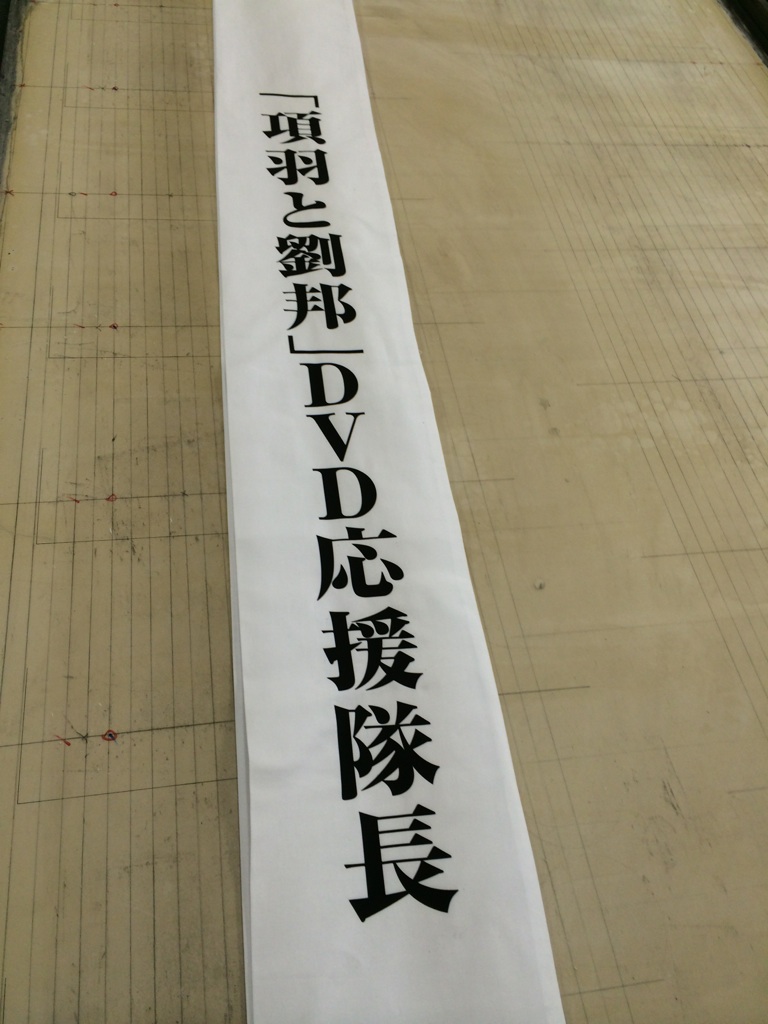 「項羽と劉邦」DVD応援隊長